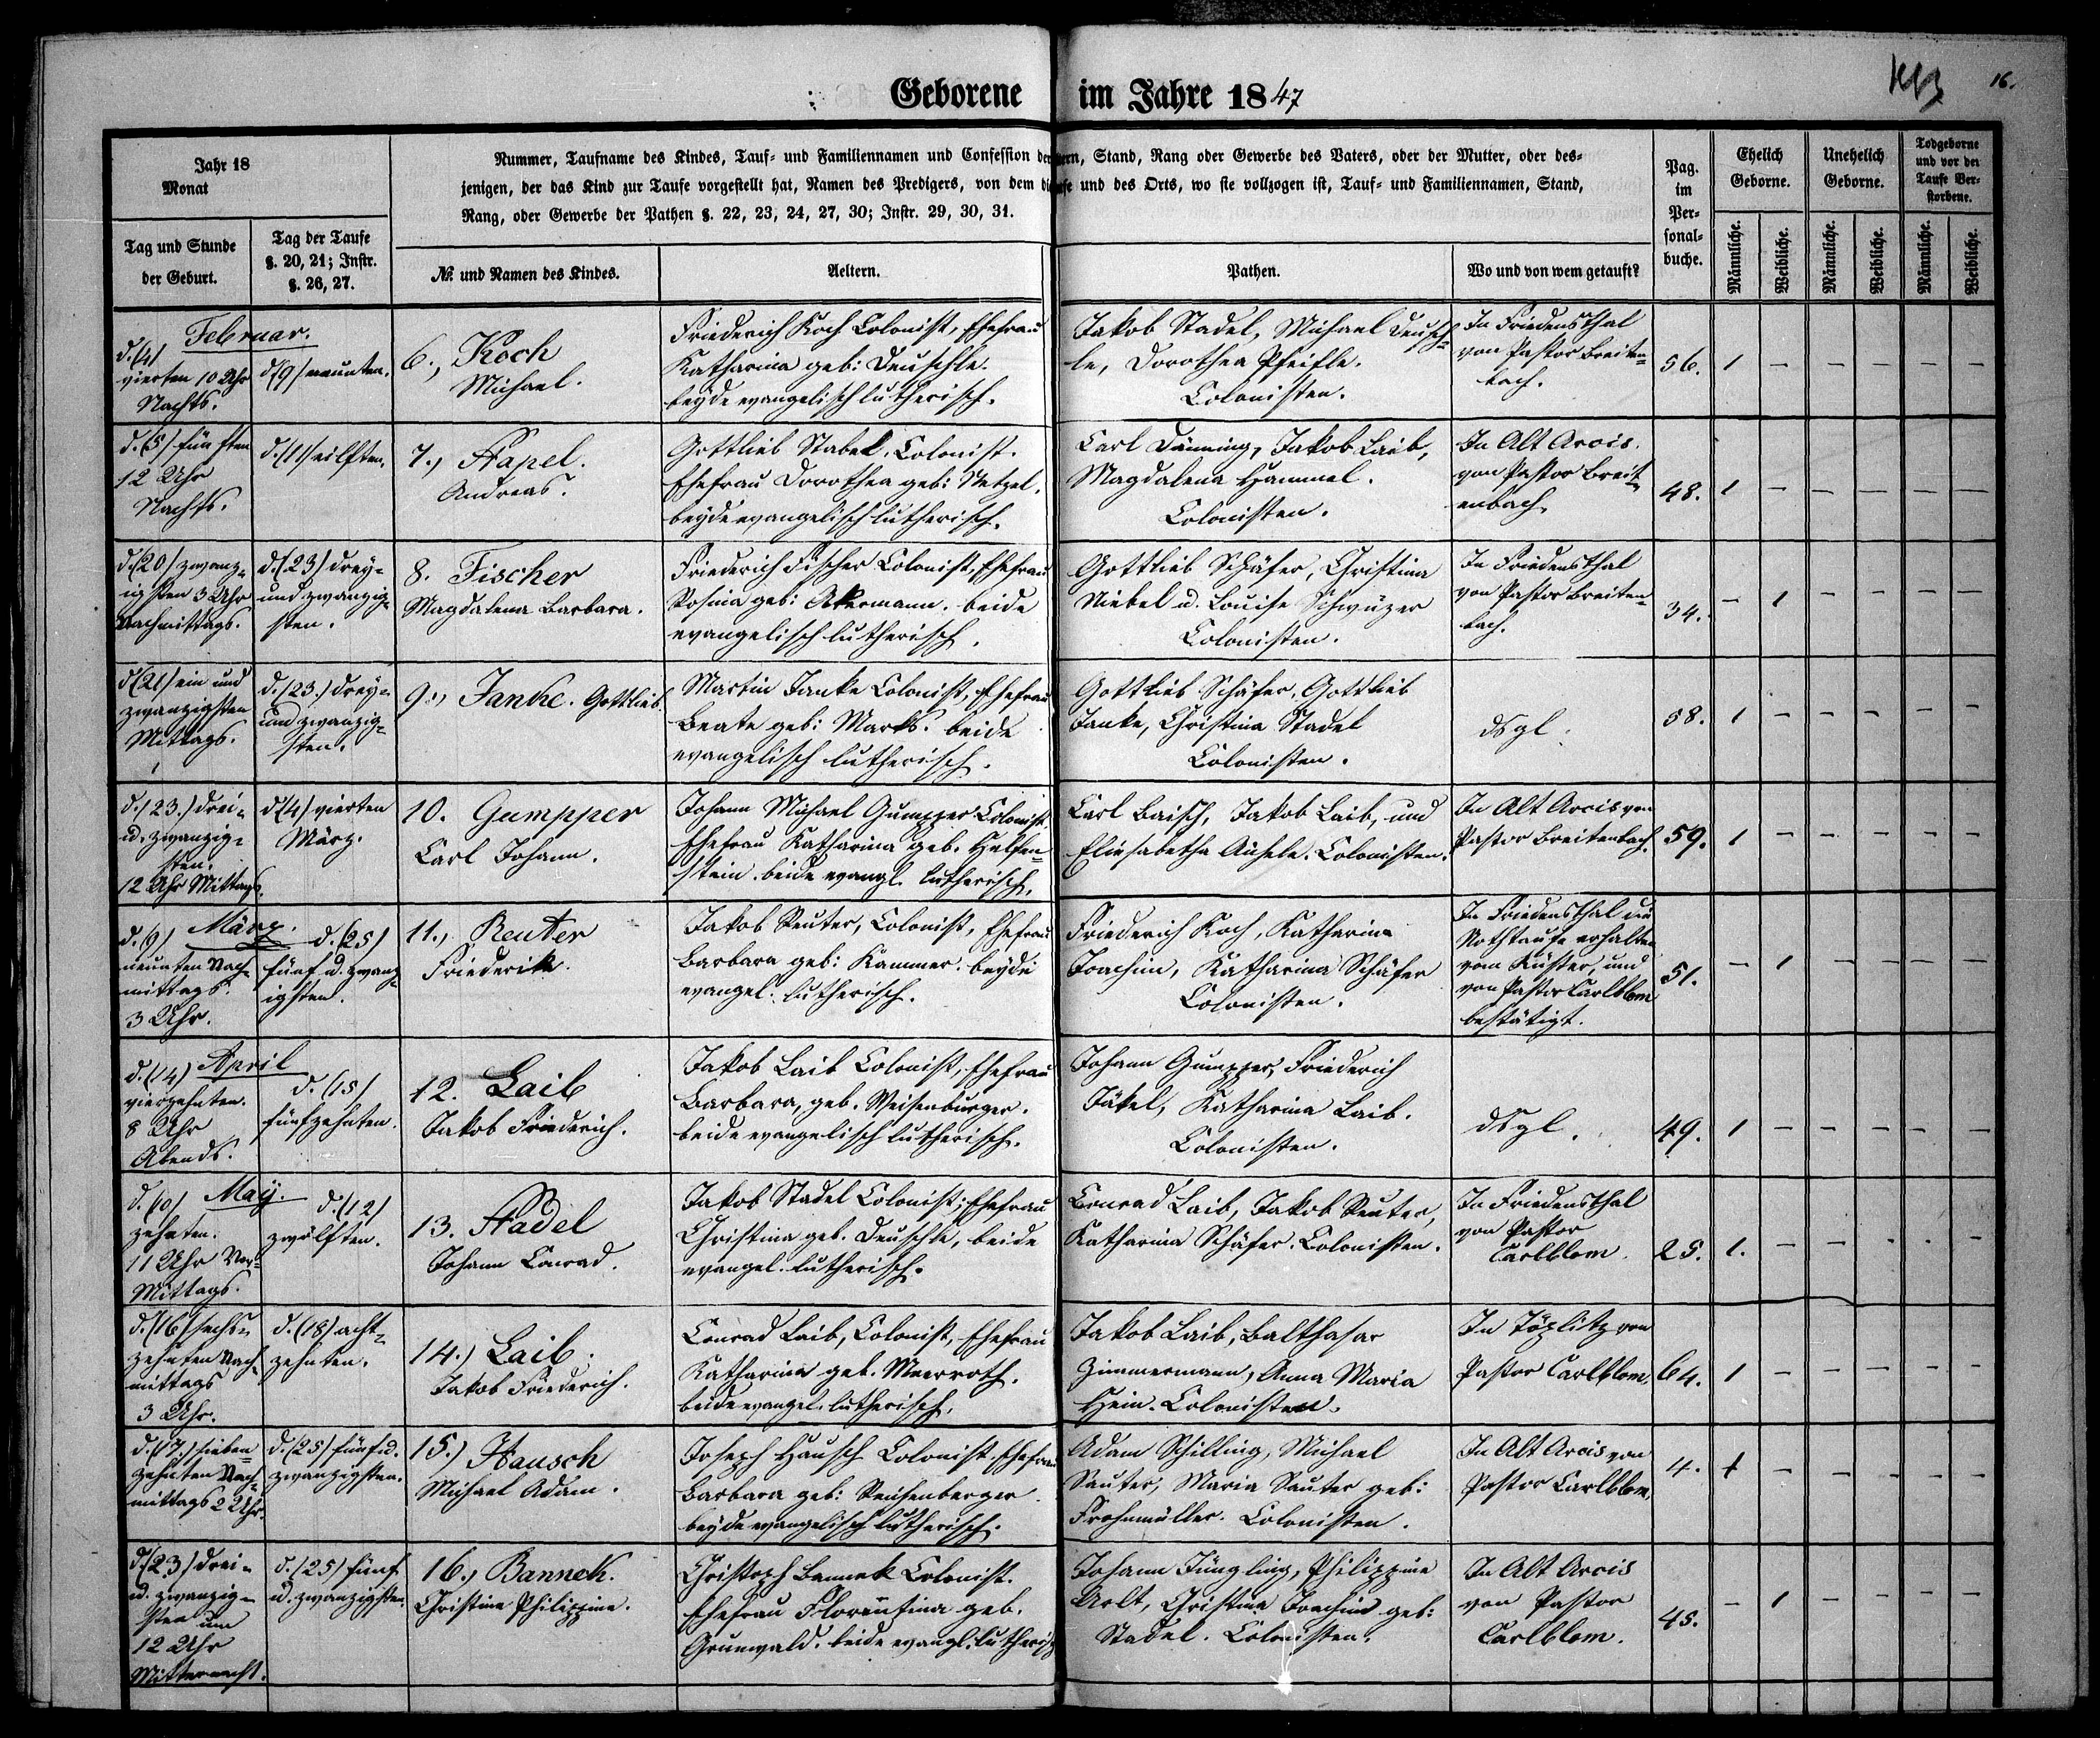 Geborene im Jahre 1847
16.
Jahr 18
Monat
Tag und Stunde
der Geburt.
Tag der Taufe
§. 20, 21; Instr.
§. 26, 27.
Nummer, Taufname des Kindes, Tauf- und Familiennamen und Confession der Aeltern, Stand, Rang oder Gewerbe des Vaters, oder der Mutter, oder des-
jenigen, der das Kind zur Taufe vorgestellt hat, Namen des Predigers, von dem die Taufe und des Orts, wo sie vollzogen ist, Tauf- und Familiennamen, Stand,
Rang, oder Gewerbe der Pathen §. 22, 23, 24, 27, 30; Instr. 29, 30, 31.
№. und Namen des Kindes.
Aeltern.
Pathen.
Wo und von wem getauft?
Pag.
im
Per-
sonal-
buche.
Ehelich
Geborne.
Unehelich
Geborne.
Todgeborne
und vor der
Taufe Ver-
storbene.
Männliche.
Weibliche.
Männliche.
Weibliche.
Männliche.
Weibliche.
Februar.
d. (4)
vierten 10 Uhr
Nachts.
d (9) neunten.
6., Koch
Michael.
Friederich Koch Colonist, Ehefrau
Katharina geb: Deuschle.
beyde evangelisch lutherisch.
Jakob Stadel, Michael Deusch-
le, Dorothea Pfeifle.
Colonisten.
In Friedensthal
von Pastor Breiten-
bach.
56. 1 – – – – –
d. (5) fünften
12 Uhr
Nachts.
d. (11) eilften.
7., Stapel.
Andreas.
Gottlieb Colonist.
Ehefrau Dorothea geb:
beyde evangelisch lutherisch.
Carl Jakob Laib,
Magdalena Hammel.
Colonisten.
In Alt Arcis.
von Pastor Breit-
enbach
48. 1 – – – – –
d. (20) zwanz-
igsten 3 Uhr
Nachmittags.
d. (23) drey-
und zwanzig-
sten.
8. Fischer
Magdalena Barbara.
Friederich Fischer Colonist, Ehefrau
Rosina geb: Akermann. beide
evangelisch lutherisch.
Gottlieb Schäfer, Christina
Niebel u. Louise
Colonisten.
In Friedensthal
von Pastor Breiten-
bach.
34. – 1 – – – –
d (21) ein und
zwanzigsten
Mittags.
d. (23.) drey-
und zwanzig-
sten.
9., Janke. Gottlieb.
Martin Janke Colonist, Ehefrau
Beate geb: Marks. beide
evangelisch lutherisch.
Gottlieb Schäfer, Gottlieb
Janke, Christina Stadel
Colonisten.
dsgl.
58. 1 – – – – –
d. (23.) drei-
u. zwanzig-
sten.
12 Uhr Mittags.
d (4) vierten
März.
10. Gumpper
Carl Johann.
Johann Michael Gumpper Colonist
Ehefrau Katharina geb. Helfen-
stein. beide evangl. lutherisch.
Carl Baisch, Jakob Laib, und
Eliesabetha Colonisten.
In Alt Arcis von
Pastor Breitenbach.
59. 1 – – – – –
März.
d. (9)
neunten Nach-
mittags.
3 Uhr.
d. (25)
fünf u. zwanz-
igsten.
11., Reuter
Friederik.
Jakob Reuter, Colonist, Ehefrau
Barbara geb: Kammer. beyde
evangel: lutherisch.
Friederich Koch, Katharina
Joachim, Katharina Schäfer
Colonisten.
In Friedensthal die
Nothtaufe erhalten
vom Küster, und
von Pastor Carlblom
bestätigt.
51. – 1 – – – –
April
d. (14)
vierzehnten.
8 Uhr
Abends.
d. (15)
fünfzehnten.
12. Laib
Jakob Friederich.
Jakob Laib Colonist, Ehefrau
Barbara, geb. Weisenburger.
beide evangelisch lutherisch.
Johann Gumpper, Friederich
Jäkel, Katharina Laib.
Colonisten.
dsgl.
49. 1 – – – – –
May.
d. (10)
zehnten.
11 Uhr Vor-
Mittags.
d. (12)
zwölften.
13. Stadel
Johann Conrad.
Jakob Stadel Colonist; Ehefrau
Christina geb. Deuschle, beide
evangel. lutherisch.
Conrad Laib, Jakob Reuter,
Katharina Schäfer. Colonisten.
In Friedensthal
von Pastor
Carlblom.
25. 1. – – – – –
d. (16) sechs-
zehnten Nach-
mittags
3 Uhr.
d. (18) acht-
zehnten.
14.) Laib.
Jakob Friederich.
Conrad Laib, Colonist, Ehefrau
Katharina geb. Meerroth.
beide evangel. lutherisch.
Jakob Laib, Balthasar
Zimmermann, Anna Maria
Hein. Colonisten.
In Töplitz von
Pastor Carlblom.
64. 1 – – – – –
d. (17.) sieben-
zehnten Nach-
mittags 2 Uhr.
d. (25) fünf u.
zwanzigsten.
15.) Hausch
Michael Adam.
Joseph Hausch Colonist. Ehefrau
Barbara geb: Reusenberger.
beyde evangelisch lutherisch.
Adam Schilling, Michael
Sauter, Maria Sauter geb:
Frohnmüller. Colonisten.
In Alt Arcis von
Pastor Carlblom.
4. 1 – – – – –
d. (23) drei-
u. zwanzig-
sten um
12 Uhr
Mitternacht.
d. (25) fünf
u. zwanzigsten.
16., Bannek.
Christina Philippine.
Christoph Bannek Colonist.
Ehefrau Florentina geb.
Grunwald. beide evangl. lutherisch
Johann Jüngling, Philippine
Arlt, Christina Joachim geb:
Stadel. Colonisten.
In Alt Arcis
von Pastor
Carlblom.
45. – 1 – – – –